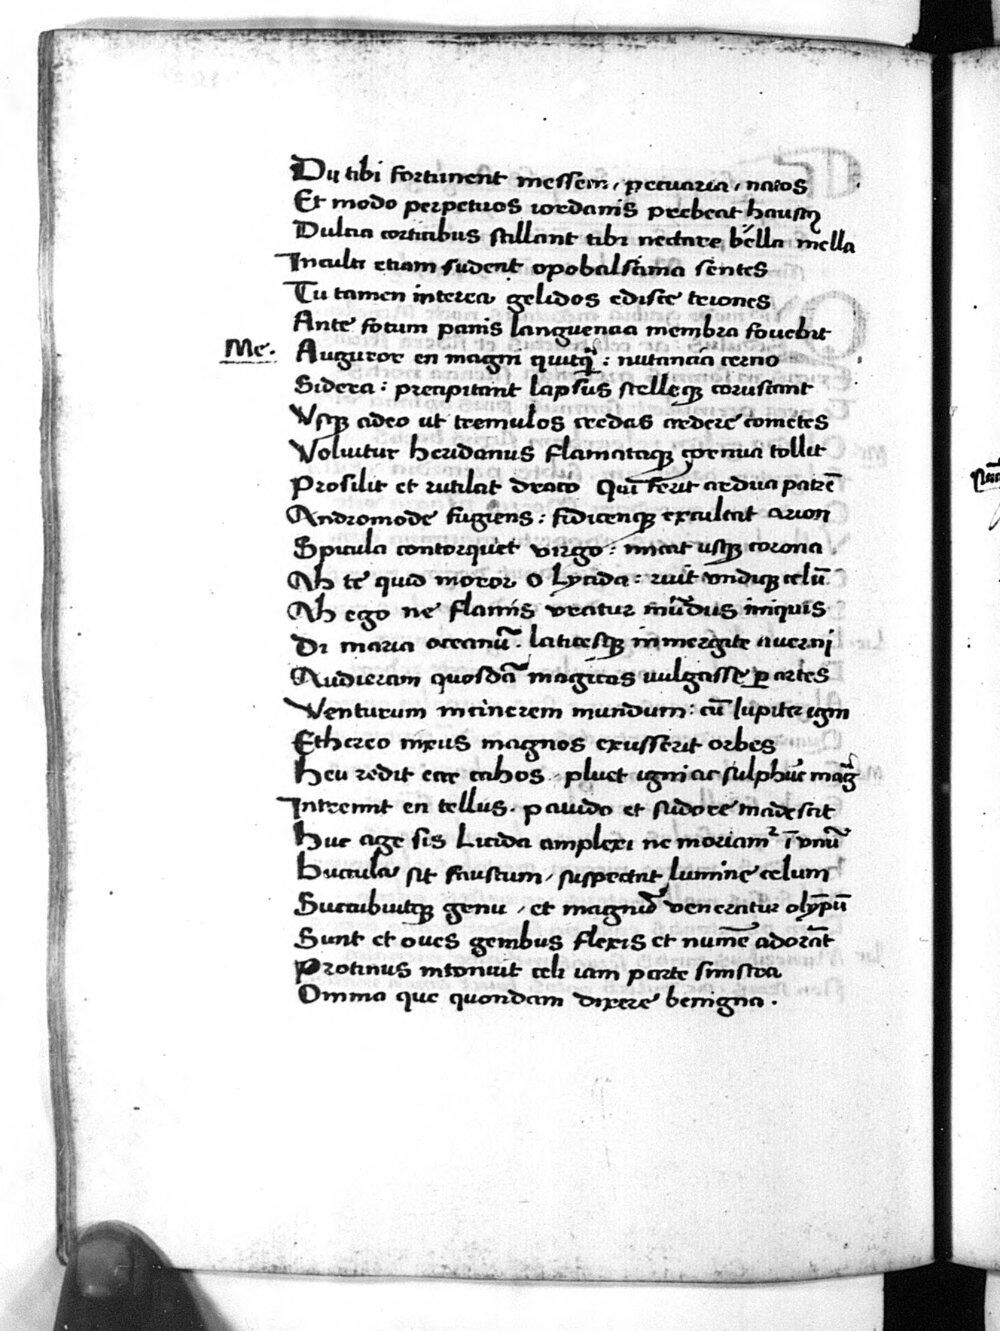 Dij tibi fortunent messem, pecuaria, natos
Et modo perpetuos iordanis prebeat haustꝰ
Dulcia corticibus stillant tibi nectare bella mella
Inculti etiam sudent opobalsama sentes
Tu tamen interea gelidos edisce triones
Ante fotum panis languencia membra fouebit
Me. Auguror en magni quitqͥd : nutancia cerno
Sidera : precipitant lapsus stelleqꝫ coruscant
Vsqꝫ adeo ut tremulos credas ardere cometes
Voluitur heridanus flamataqꝫ cornua tollit
Prosilit et rutilat draco Qui ferit ardua patrē
Andromode fugiens : fidicenqꝫ exultat arion
Spicula contorquet virgo : micat usqꝫ corona
Ah te quid moror o lycida : ruit vndiqꝫ celū
Ah ego ne flamis vratur mūdus iniquis
Di maria oceanū. laticesqꝫ immergite auerni
Audieram quosdā magicas uulgasse ꝑ artes
Venturum in cinerem mundum : cū Iupiter igni
Ethereo nixus magnos exusserit orbes
Heu redit cahos. pluet igni ac sulphure mag̃
Intremit en tellus. pauido et sudore madescit
Huc age sis Licida amplexi ne moriamʳ ī vnū
Bucula sit faustum, suspectat lumine celum
Succubuitqꝫ genu, et magnū veneratur olypū
Sunt et oues genibus flexis et numē adorāt
Protinus intonuit celi iam parte sinistra
Omnia que quondam dixere benigna.